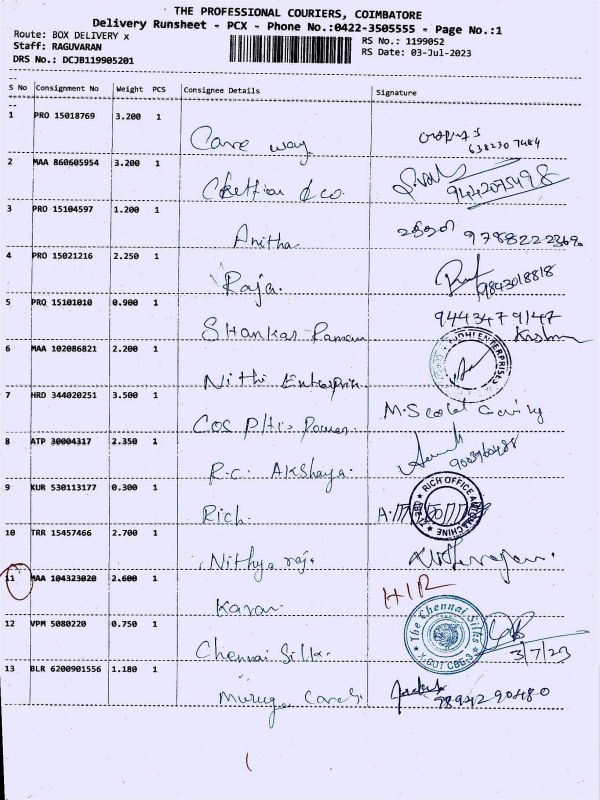 THE PROFESSIONAL COURIERS, COIMBATORE
Delivery Runsheet - PCX - Phone No.:0422-3505555 - Page No.:1
Route: BOX DELIVERY x
RS No.: 1199052
Staff: RAGUVARAN
RS Date: 03-Jul-2023
DRS No.: DCJB119905201
S No Consignment No Weight PCS Consignee Details Signature
1 PRO 15018769 3.200 1
Care way
6382307484
2 MAA 860605954 3.200 1
& co.
9442075498
3 PRO 15104597 1.200 1
Anitha
4 PRO 15021216 2.250 1
Raja.
9843018818
5 PRO 15101010 0.900 1
9444347 9147
Shankar Raman
6 MAA 102086821 2.200 1
Nithi Enterprise
7 HRD 344020251 3.500 1
8 ATP 30004317 2.350 1
R.C. Akshaya.
9 KUR 530113177 0.300 1
RICH OFFICE
Rich.
10 TRR 15457466 2.700 1
Nithya raj.
11 MAA 104323020 2.600 1
Karan
12 VPM 5080220 0.750 1
The Chennai Silks
Chennai Silks
3/7/23
13 BLR 6200901556 1.180 1
9894290480